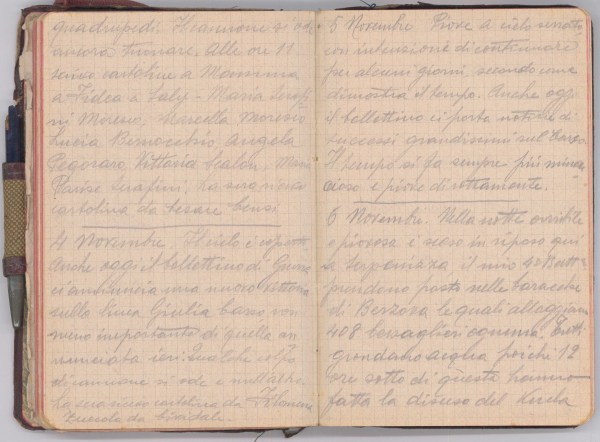 quadrupedi. Il cannone si ode
ancora tuonare. Alle ore 11
scrivo cartoline a Mammina
a Fidea a Saly - Maria Serafi
ni Moresco, Marcella Moresco
Lucia Bernocchio, Angela
Pegoraro, Vittoria Scalon, Maria
Parise Serafini. La sera ricevo
cartolina da Cesare Censi
4 Novembre. Il cielo è coperto
Anche oggi il bollettino di Guerra
ci annuncia una nuova vittoria
sulla linea Giulia Carso, non
meno importante di quella an
nunciata ieri. Qualche colpo
di cannone si ode e null'altro.
La sera ricevo cartolina da
da Cividale
5 Novembre Piove a cielo serrotto
con intenzione di continuare
per alcuni giorni secondo come
dimostra il tempo. Anche oggi
il bollettino ci porta notizie di
successi grandissimi sul Carso
Il tempo si fa sempre più minac
cioso e piove dirottamente.
6 Novembre. Nella notte orribile
e piovosa è sceso in riposo qui
a il mio 40 Batt
prendono posto nelle baracche
di Berzova le quali alloggiavano
408 bersaglieri
grondano acqua poichè 12
ore sotto di questa hanno
fatto la discesa del